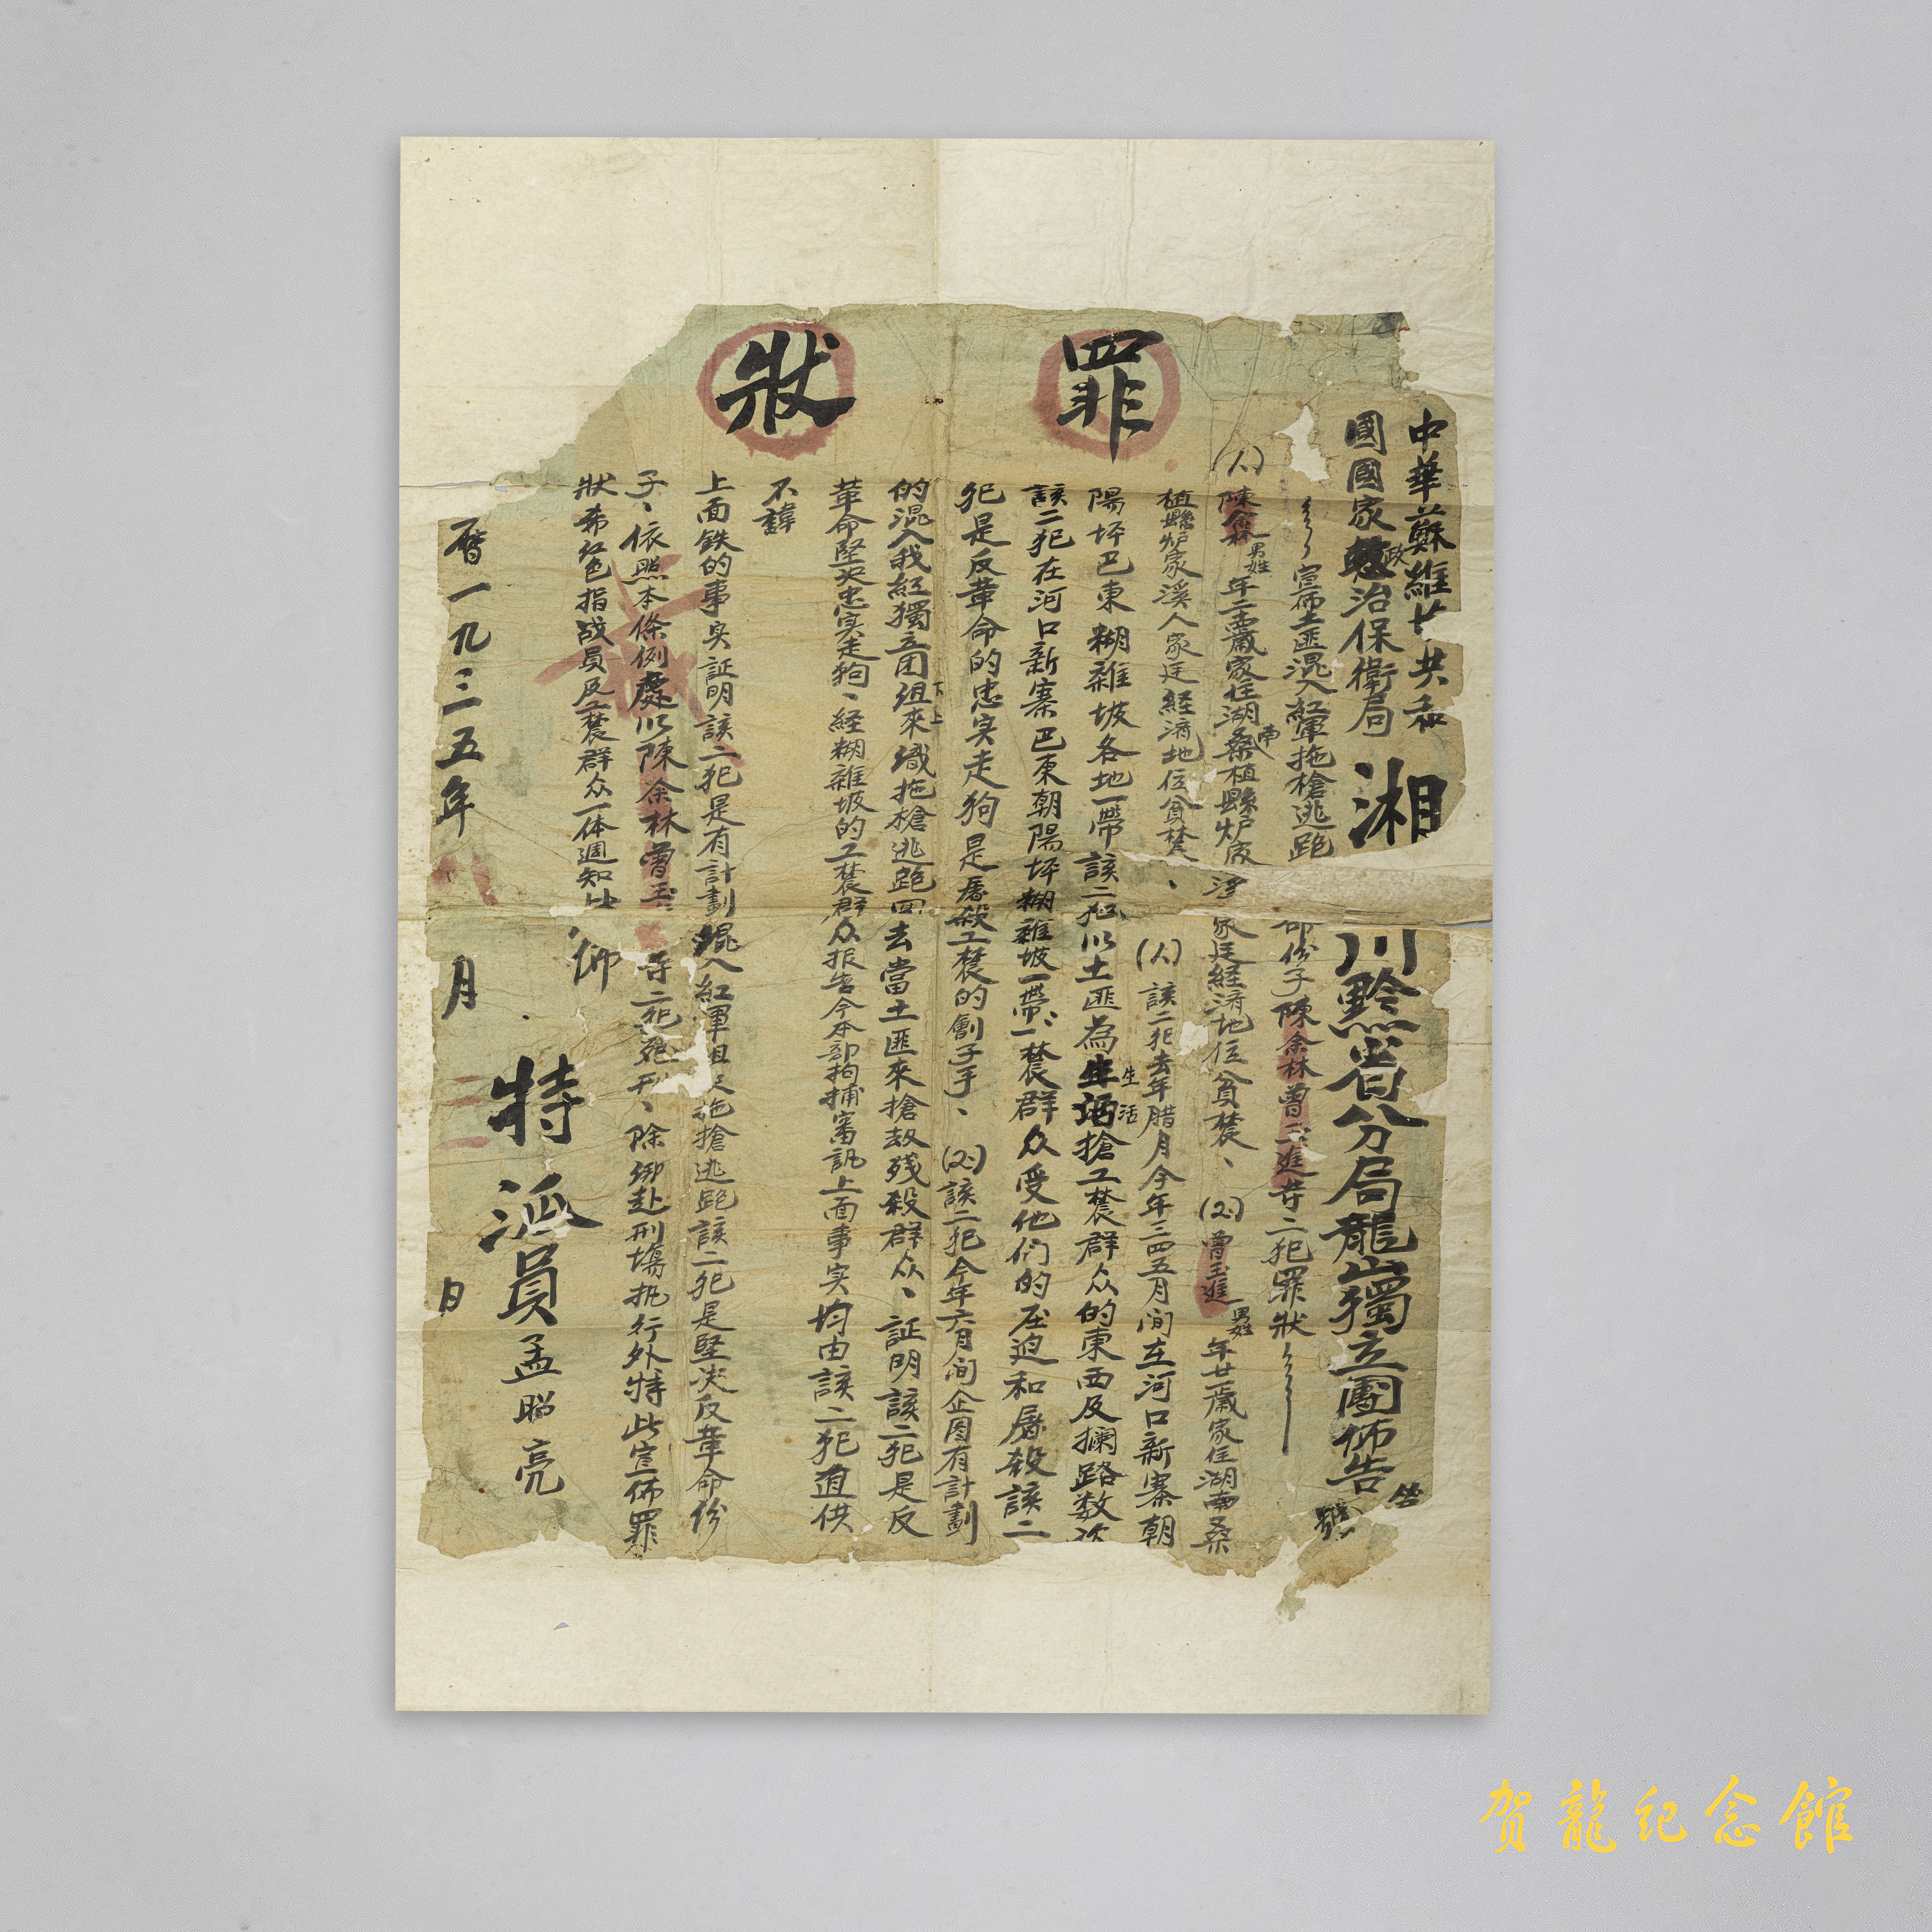 罪狀
中華蘇維 共和
國國家政治保衛局
湘 川黔省分局龍山獨立團佈告
告
號
宣佈土匪混入紅軍拖槍逃跑 部份子陳余林曾玉進等二犯罪狀
(1)陳余林男姓年二 歲家住湖南桑植縣炉 家廷経済地位貧農、(2)曾玉進男姓年廿 歲家住湖南桑
植縣炉家溪人家廷経済地位貧農、(1)該二犯去年腊月今年三四五月间在河口新寨朝
陽坪巴東糊雜坡各地一帶該二犯以土匪為生活搶工農群众的東西及攔路数次
該二犯在河口新寨巴東朝陽坪糊雜坡一帶、農群众受他们的压迫和屠殺該二
犯是反革命的忠实走狗是屠殺工農的劊子手、(2)該二犯今年六月间企图有計劃
的混入我紅獨立团组下來上織拖槍逃跑回去當土匪來搶劫残殺群众、証明該二犯是反
革命堅决忠实走狗、経糊雜坡的工農群众报告今本部拘捕審訊上面事实均由該二犯直供
不諱
上面鉄的事实証明該二犯是有計劃混入紅軍 拖搶逃跑該二犯是堅决反革命份
子、依照本條例處以陳余林曾玉 等二犯死刑、除绑赴刑場执行外特此宣佈罪
狀希紅色指战員及工農群众一体週知此佈
特派員孟昭亮
曆一九三五年 月 日
贺龍纪念館